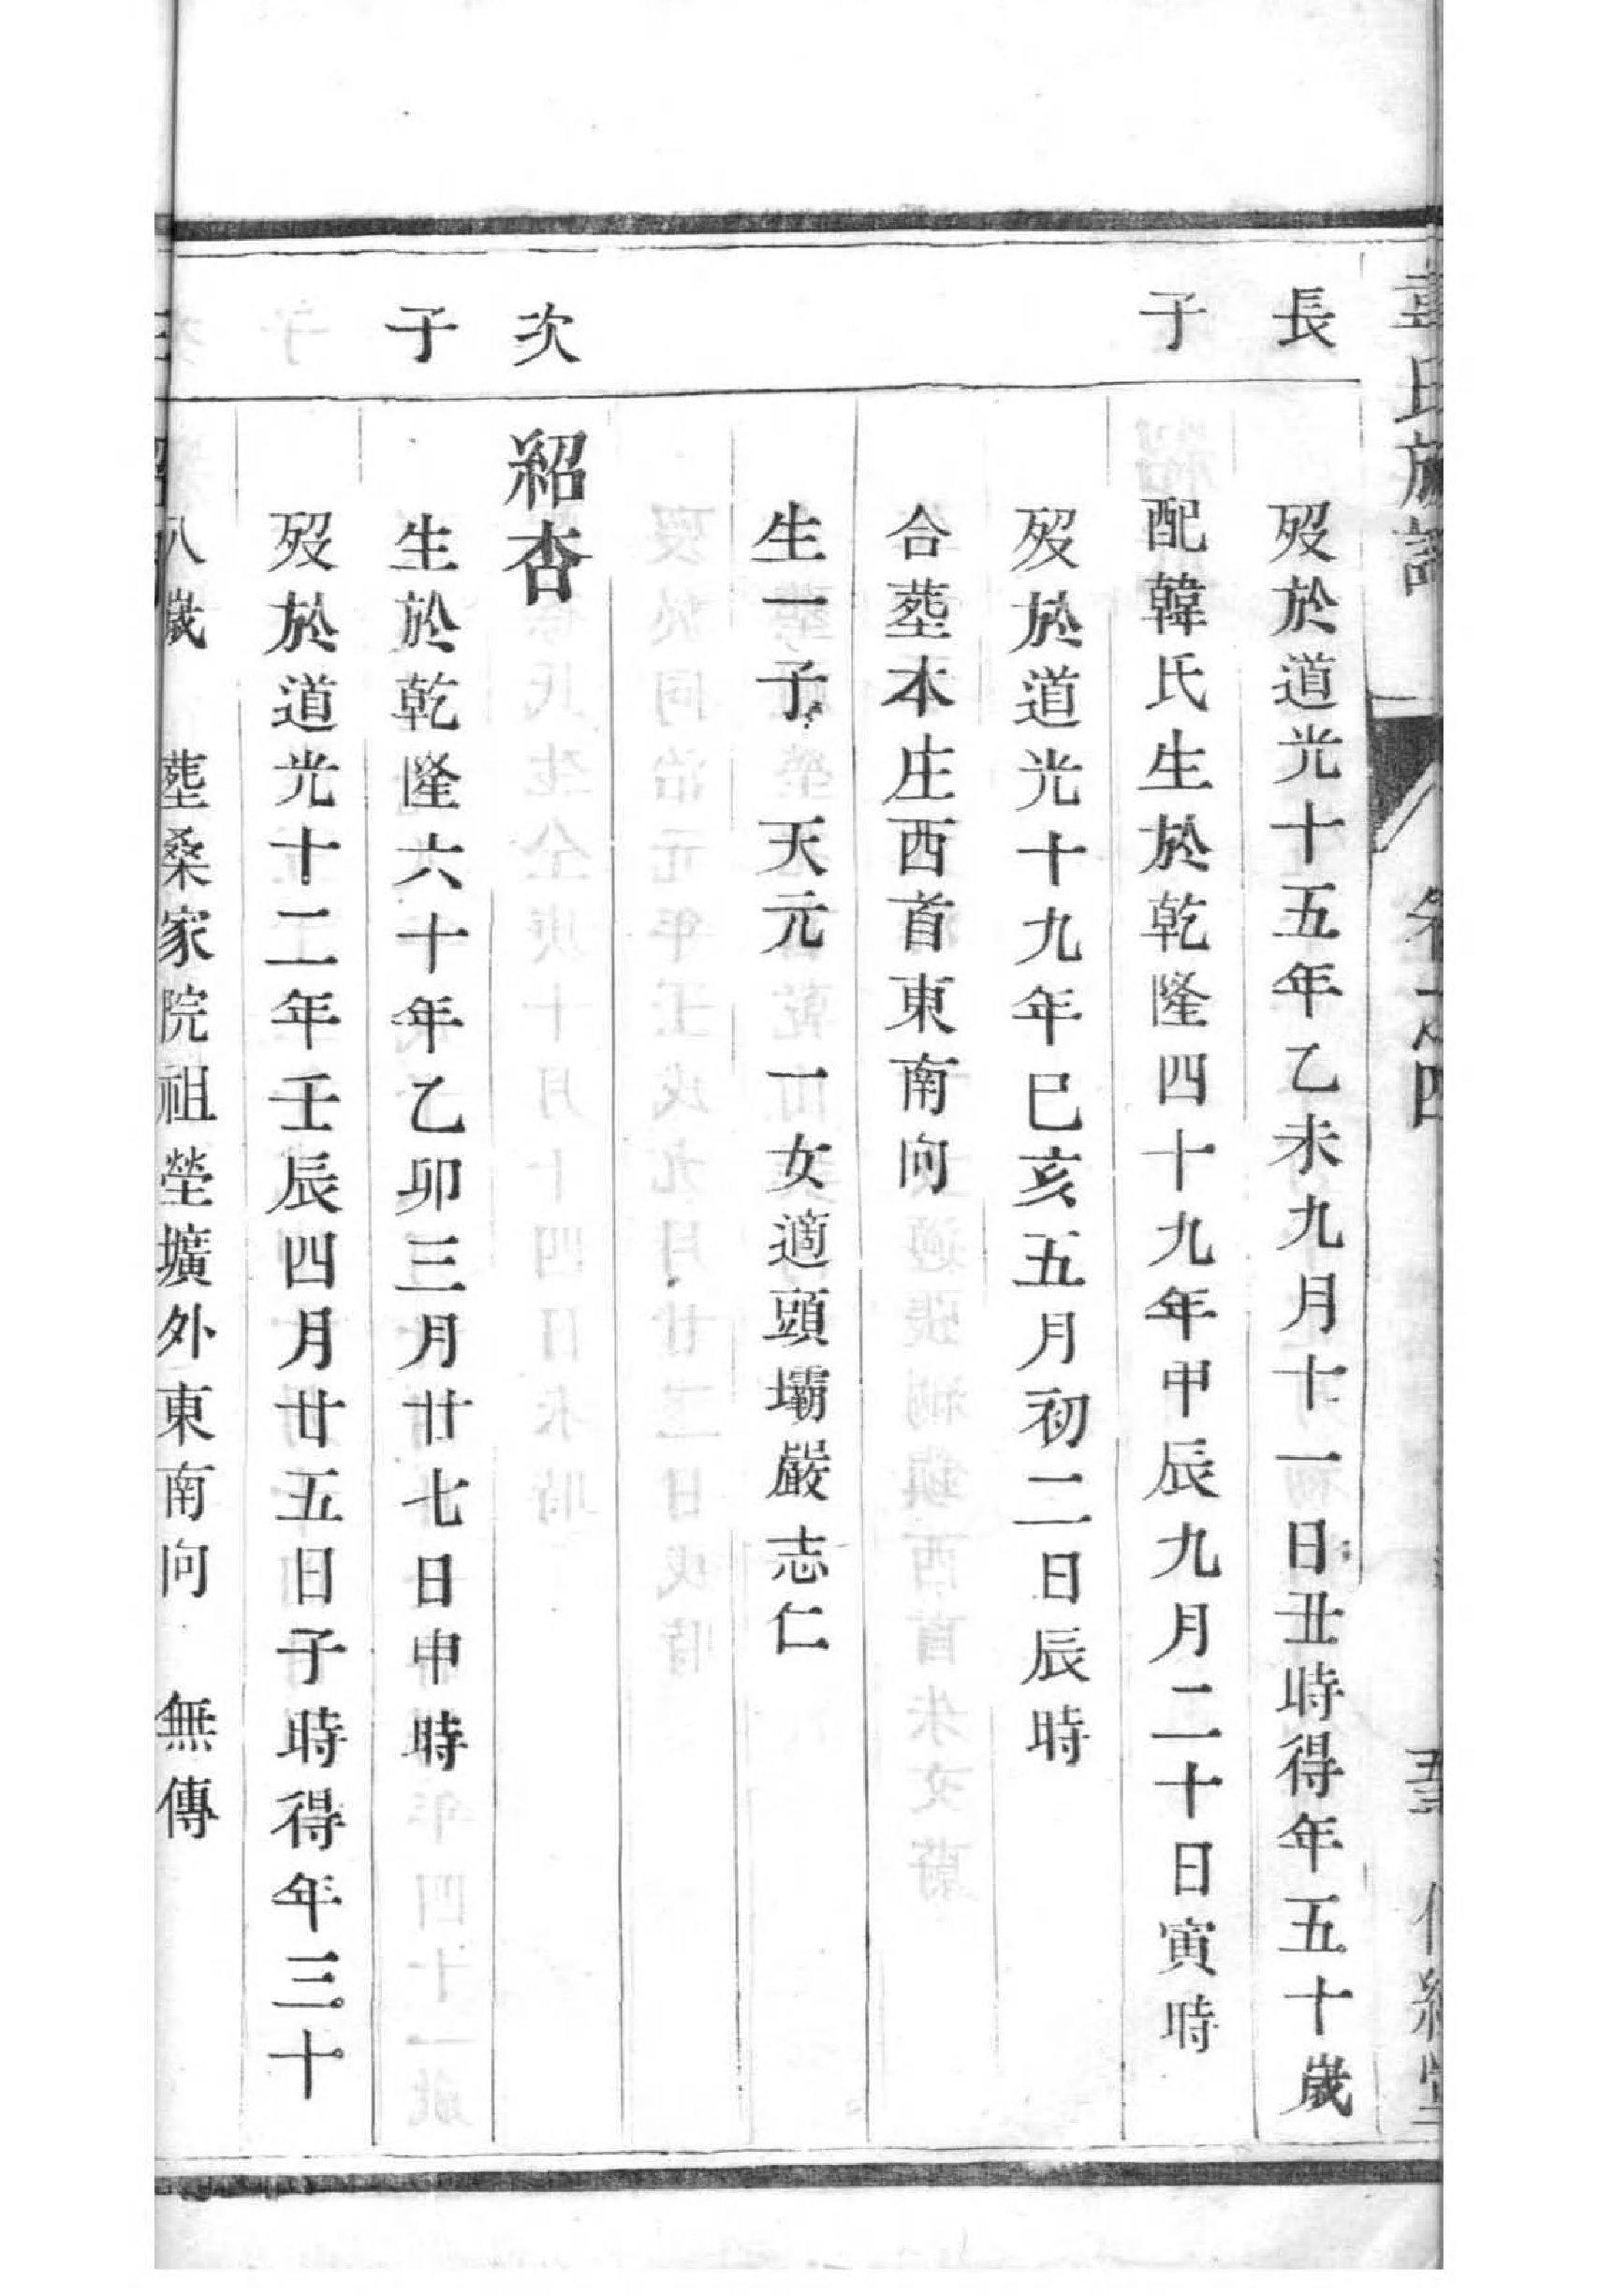 氏族譜 卷之四
長
歿於道光十五年乙未九月十一日丑時得年五十歲
子
配韓氏生於乾隆四十九年甲辰九月二十日寅時
歿於道光十九年巳亥五月初二日辰時
合塟本庄西首東南向
生一子 天元 一女適頭壩嚴志仁
次
紹杏
子
生於乾隆六十年乙卯三月廿七日申時
歿於道光十二年壬辰四月廿五日子時得年三十
八歲 塟桑家院祖塋壙外東南向 無傳